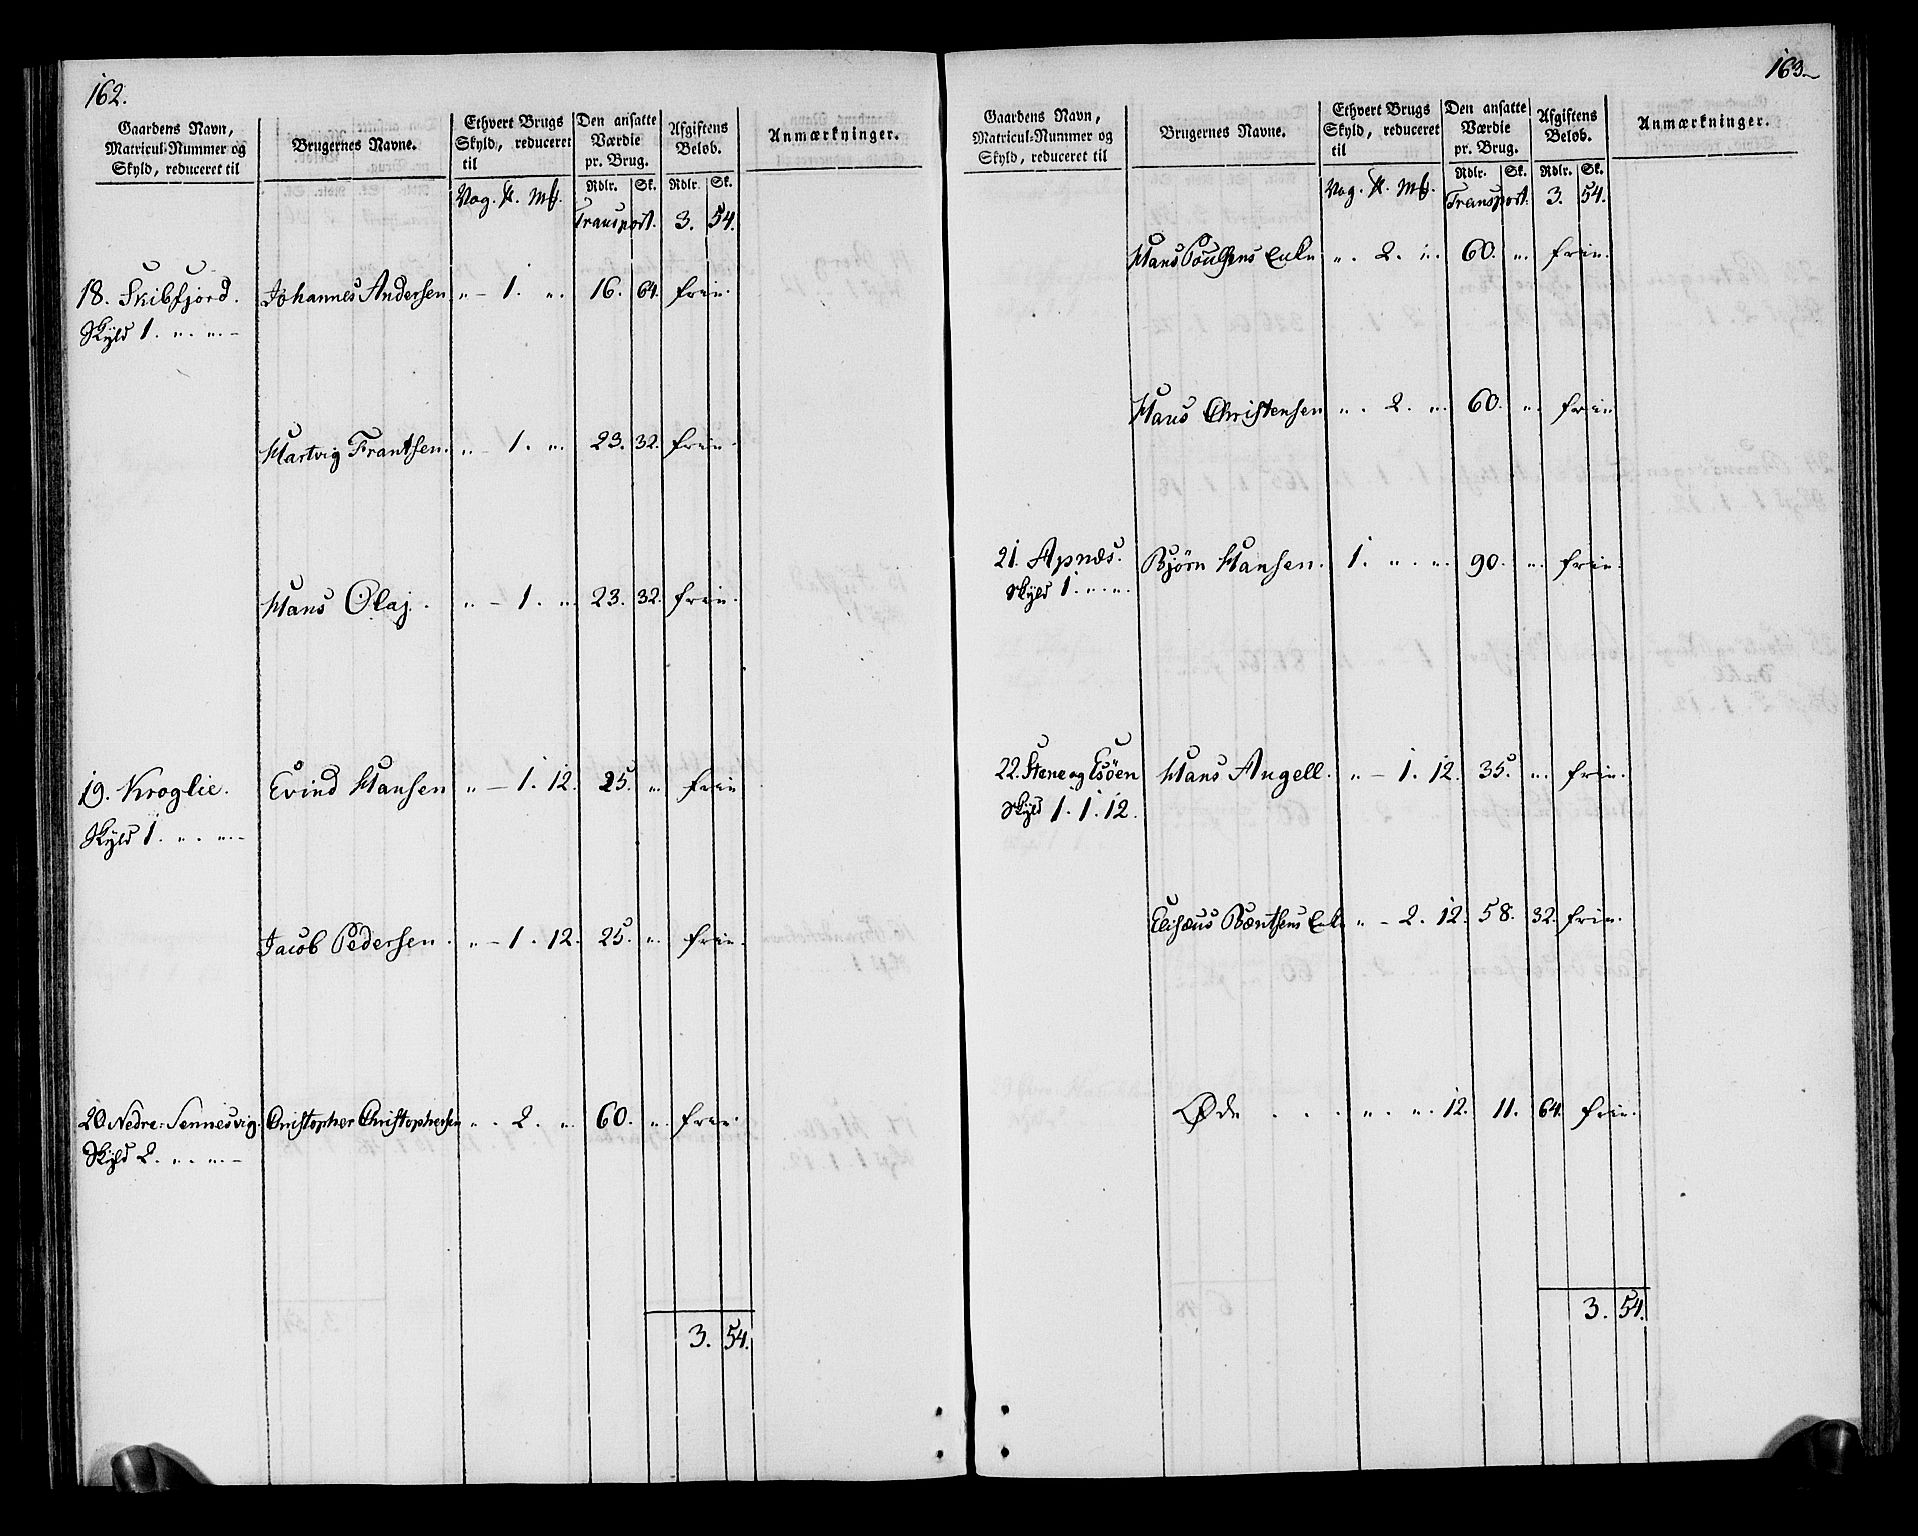 162.
Gaardens Navn, Matricul-Nummer og Skyld, reduceret til | Brugernes Navne. | Ethvert Brugs Skyld, reduceret til | Den ansatte Værdie pr. Brug. | Afgiftens Beløb. | Anmærkninger.
Vog. ℔. Mk. | Rdlr. | Sk. | Rdlr. | Sk.
Transport. 3. 54.
18. Skibfjord. Johannes Andersen „ – 1. „. 16. 64. frie.
Skyld 1. „. „. –
Hartvig Frantsen. „ – 1. „. 23. 32. frie.
Hans Olaj. „ – 1. „. 23. 32. frie.
19. Kroglie. Evind Hansen „ – 1. 12. 25. „ frie
Skyld 1. „. „. –
Jacob Pedersen. „ – 1. 12. 25. „. frie.
20 Nedre-Sennesvig. Christopher Christophersen „. 2. „. 60. „. frie.
Skyld 2. „. „. –
3. 54.
163.
Gaardens Navn, Matricul-Nummer og Skyld, reduceret til | Brugernes Navne. | Ethvert Brugs Skyld, reduceret til | Den ansatte Værdie pr. Brug. | Afgiftens Beløb. | Anmærkninger.
Vog. ℔. Mk. | Rdlr. | Sk. | Rdlr. | Sk.
Transport. 3. 54.
Hans Poulsens Enke „. 2. „. 60. „. frie.
Hans Christensen „. 2. „. 60. „. frie
21. Apnæs. Bjørn Hansen. 1. „. „. 90. „. frie.
Skyld 1. „. „.
22. Stene og Esöen Hans Angell. „ – 1. 12. 35. „. frie.
Skyld 1. 1. 12.
Elisæus Bæntsens Enke „ – 2. 12. 58. 32. frie.
Øde . . . „. „. 12. 11. 64. frie.
3. 54.